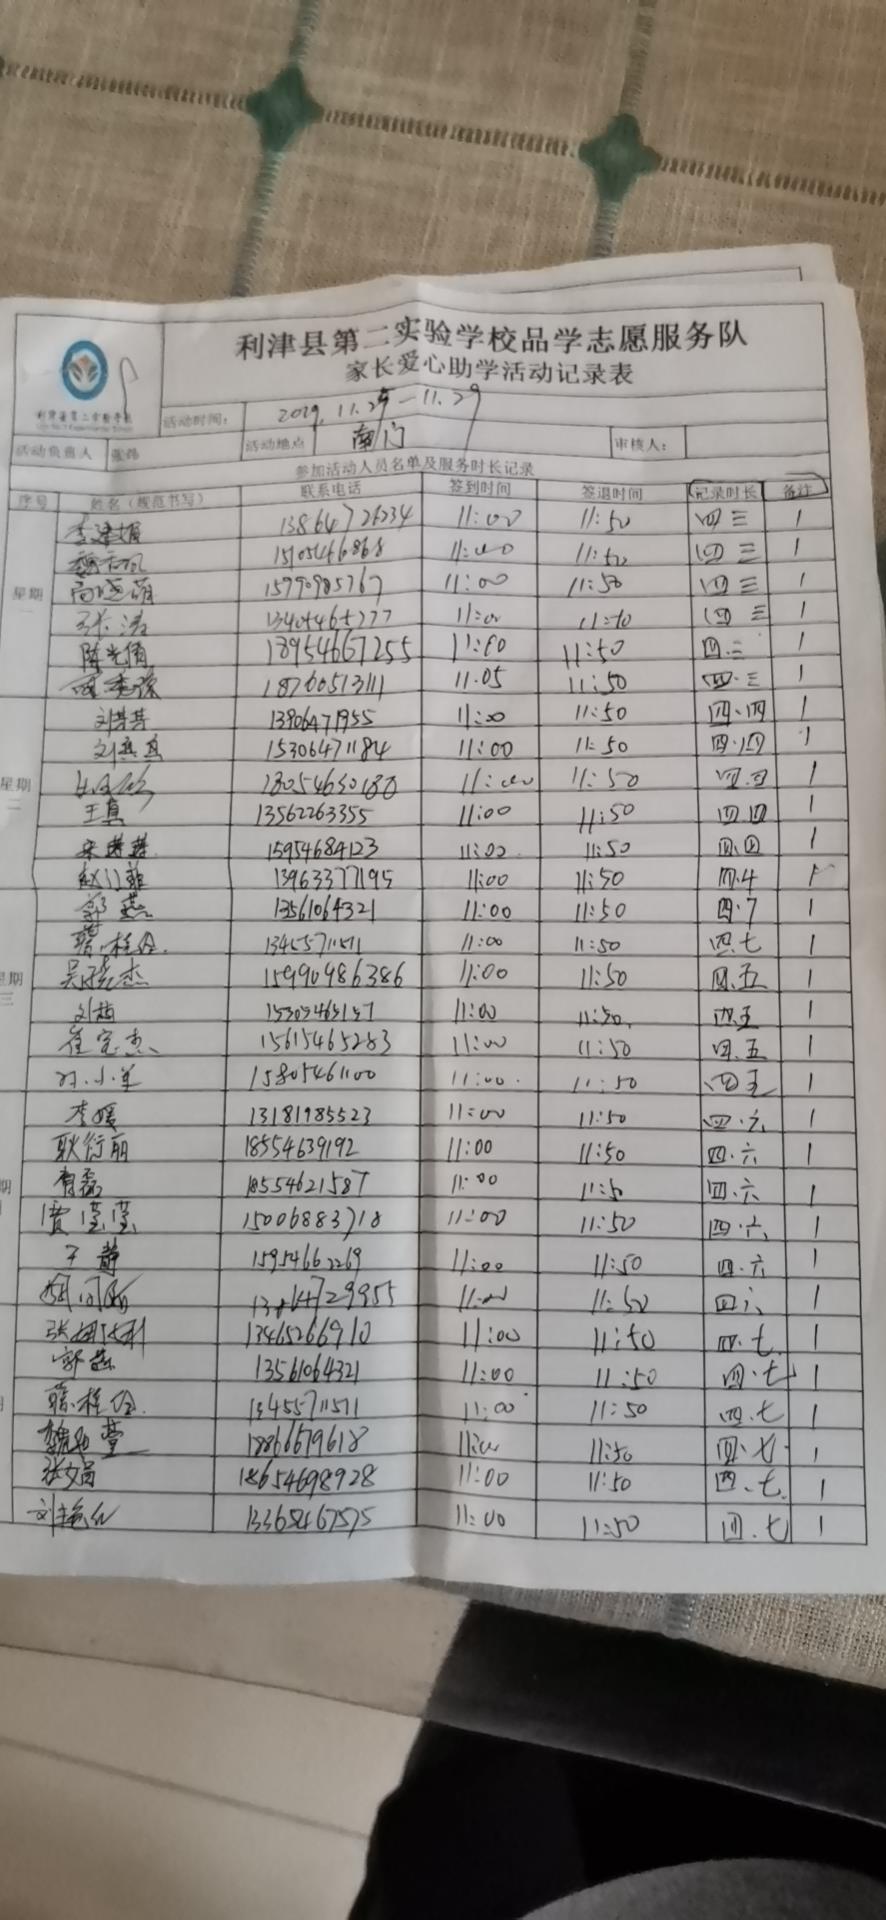 利津县第二实验学校品学志愿服务队
家长爱心助学活动记录表
利津县第二实验学校
活动时间: 2019.11.25-11.29
活动负责人 张伟 活动地点 南门 审核人:
参加活动人员名单及服务时长记录
序号 姓名(规范书写) 联系电话 签到时间 签退时间 记录时长 备注
星期一
李建娟 13864726234 11:00 11:50 四三 1
11:00 11:50 四三 1
高晓萌 15990985767 11:00 11:50 四三 1
张涛 11:00 11:50 四三 1
陈光倩 18954667255 11:00 11:50 四.三 1
18760513111 11.05 11:50 四.三 1
星期二
刘芹芹 13906471955 11:00 11:50 四.四 1
刘真真 15306471184 11:00 11:50 四.四 1
18054630180 11:00 11:50 四.四 1
王真 13562263355 11:00 11:50 四四 1
宋莲莲 15954684123 11:00 11:50 四.四 1
13963377195 11:00 11:50 四.4 1
星期三
郭燕 13561064321 11:00 11:50 四.7 1
13455711511 11:00 11:50 四.七 1
吴晓杰 15990986386 11:00 11:50 四.五 1
刘梅 11:00 11:50 四.五 1
崔宝杰 15615465283 11:00 11:50 四.五 1
15805461100 11:00 11:50 四五 1
李媛 13181985523 11:00 11:50 四.六 1
耿衍丽 18554639192 11:00 11:50 四.六 1
18554621587 11:00 11:50 四.六 1
贾莹莹 15006883718 11:00 11:50 四.六 1
王静 15954662269 11:00 11:50 四.六 1
11:00 11:50 四六 1
张娜娜 13465266910 11:00 11:50 四.七 1
郭燕 13561064321 11:00 11:50 四.七 1
13455711511 11:00 11:50 四.七 1
18866679618 11:00 11:50 四.七 1
张文娟 18654698928 11:00 11:50 四.七 1
刘艳红 13365467575 11:00 11:50 四.七 1